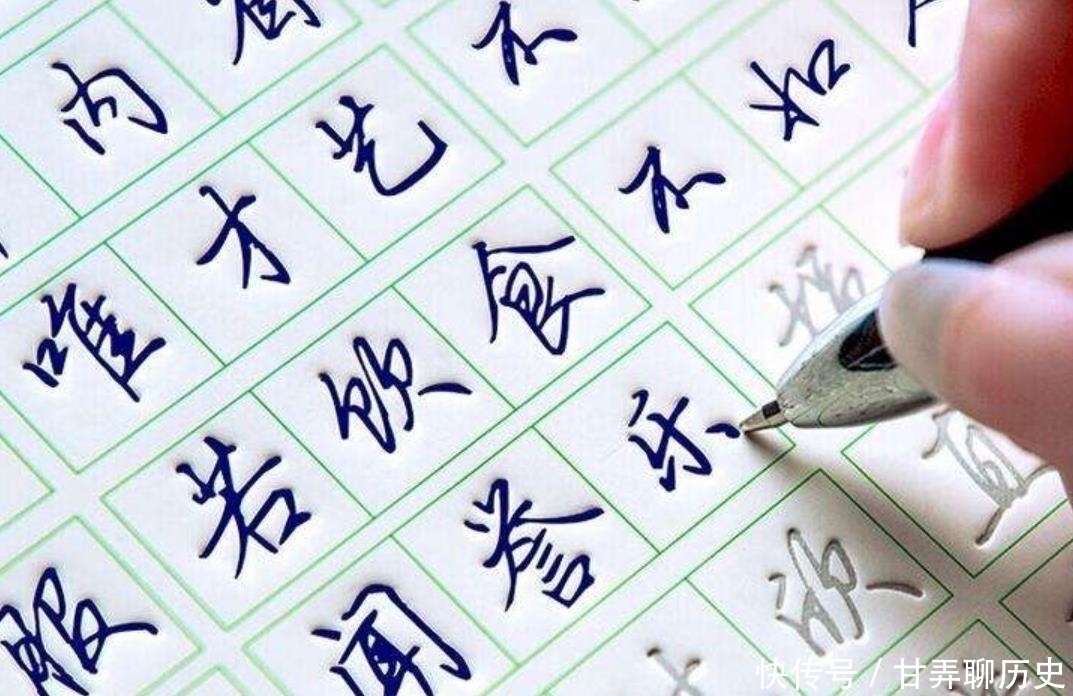 内
唯才艺不
服若饮食不如人
闻誉乐损
快传号 / 甘弄聊历史